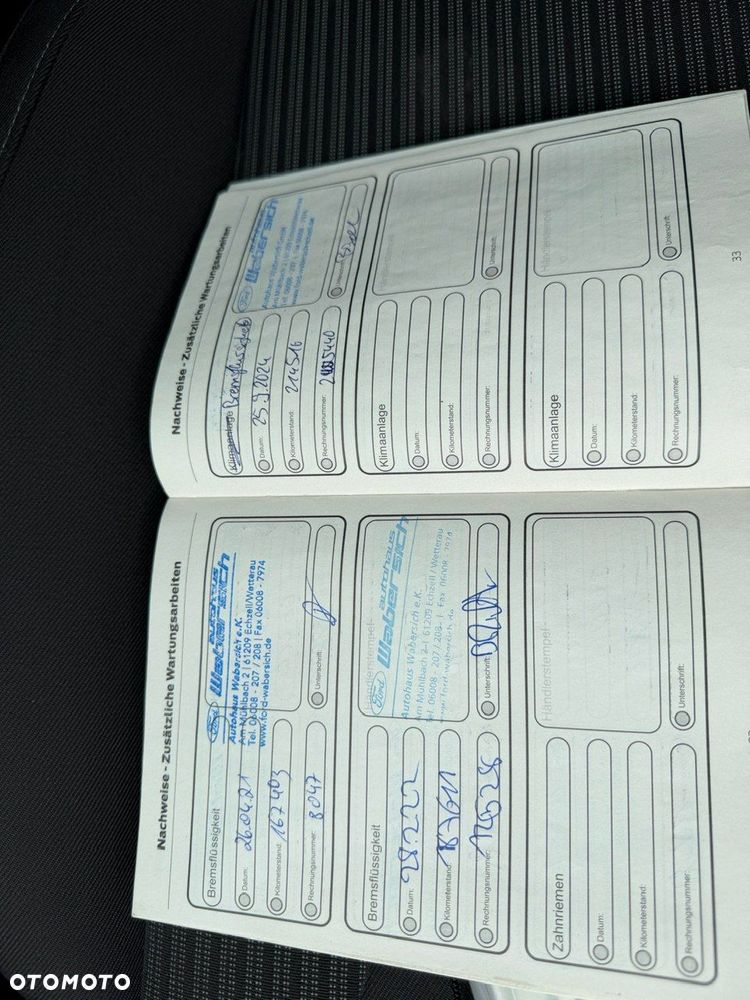 Nachweise - Zusätzliche Wartungsarbeiten
Bremsflüssigkeit
Datum: 26.04.21
Kilometerstand: 167403
Rechnungsnummer: 8047
Ford autohaus
Webersich
Autohaus Webersich e.K.
Am Mühlbach 2 | 61209 Echzell/Wetterau
Tel. 06008 - 207 / 208 | Fax 06008 - 7974
www.ford-webersich.de
Unterschrift:
Bremsflüssigkeit
Datum: 28.2.22
Kilometerstand:
Rechnungsnummer:
Händlerstempel
Ford autohaus
Webersich
Autohaus Webersich e.K.
Am Mühlbach 2 | 61209 Echzell/Wetterau
Tel. 06008 - 207 / 208 | Fax 06008 - 7974
www.ford-webersich.de
Unterschrift:
Zahnriemen
Datum:
Kilometerstand:
Rechnungsnummer:
Händlerstempel
Unterschrift:
Nachweise - Zusätzliche Wartungsarbeiten
Klimaanlage
Datum: 25.9.2024
Kilometerstand: 214516
Rechnungsnummer:
Ford
Webersich
Klimaanlage
Datum:
Kilometerstand:
Rechnungsnummer:
Händlerstempel
Unterschrift:
Klimaanlage
Datum:
Kilometerstand:
Rechnungsnummer:
Händlerstempel
Unterschrift:
33
OTOMOTO